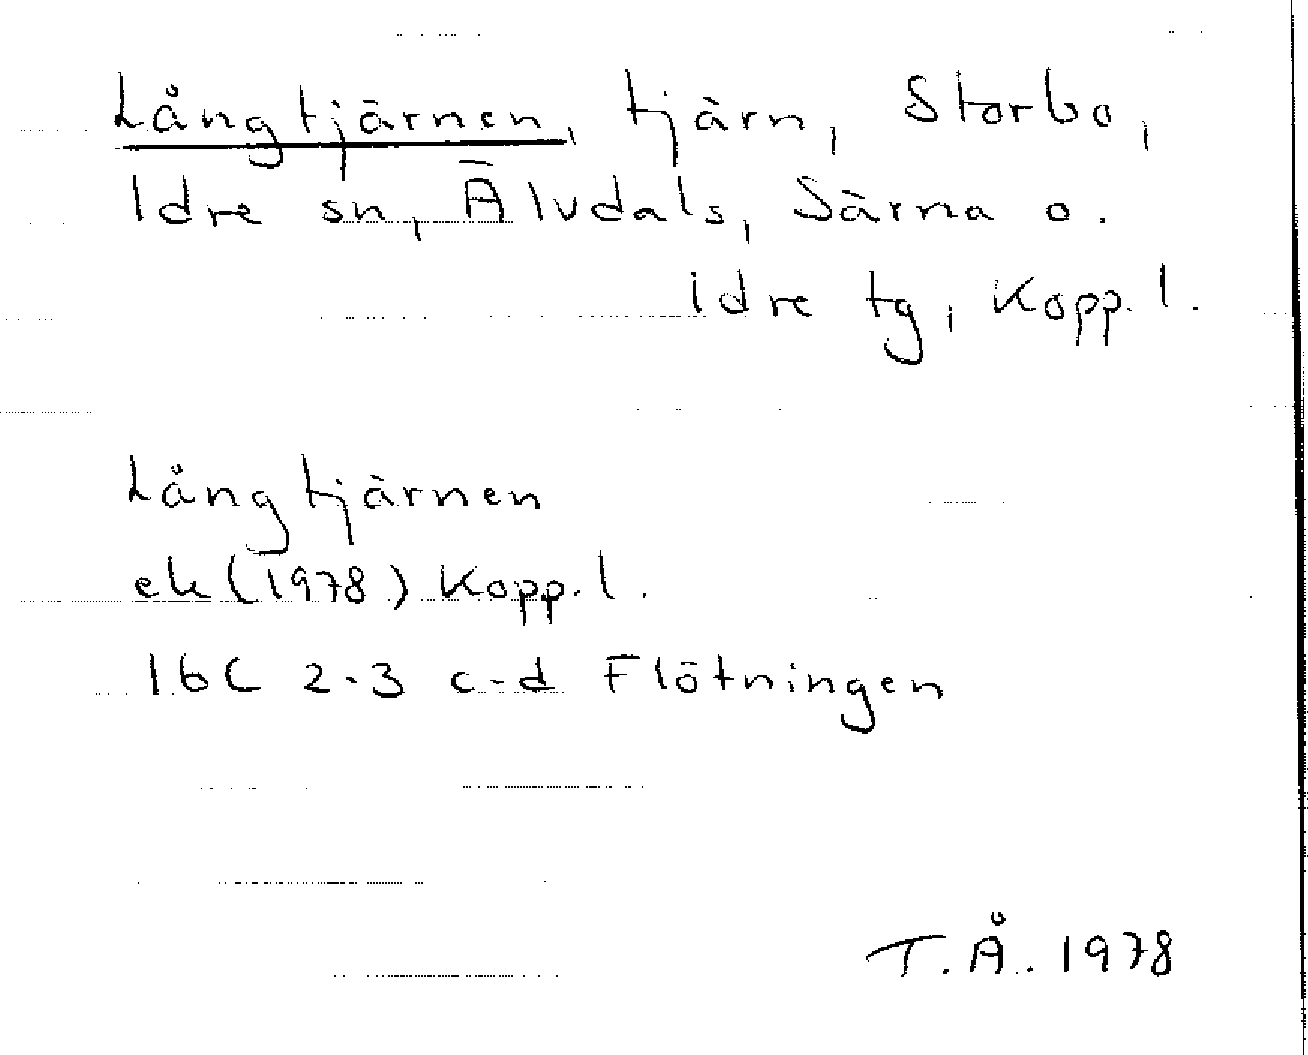 Långtjärnen, tjärn, Storbo,
Idre sn, Älvdals, Särna o.
Idre tg, Kopp. l.
Långtjärnen
ek (1978) Kopp. l.
16C 2-3 c-d Flötningen
T.Å. 1978